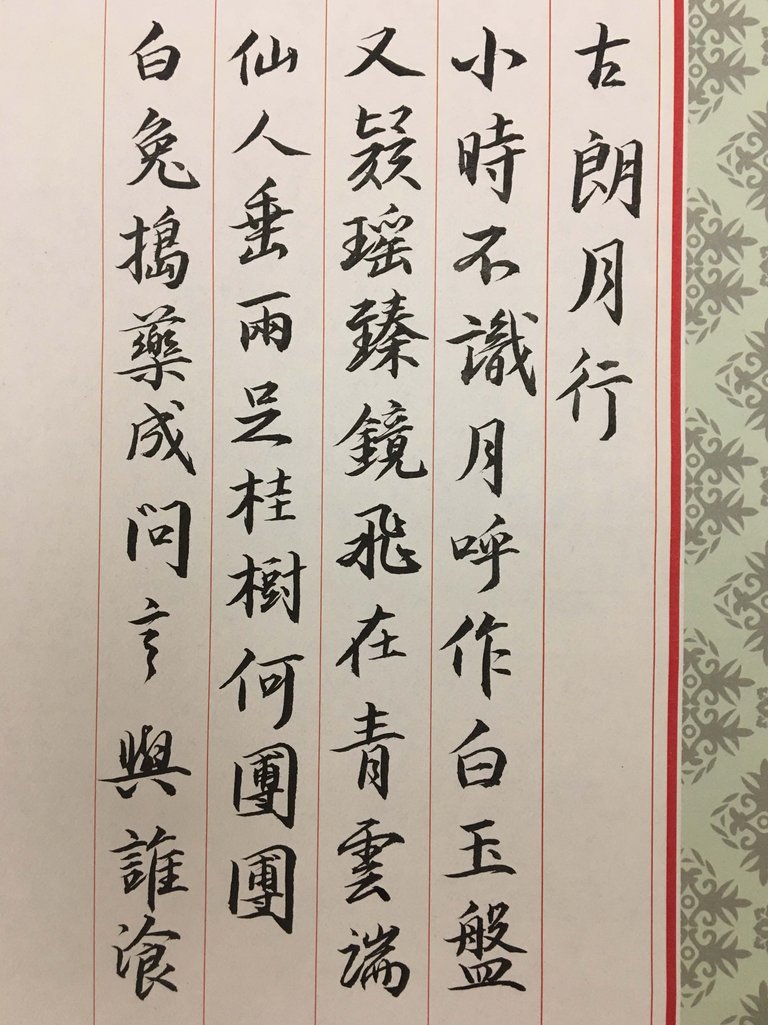 古朗月行
小時不識月呼作白玉盤
又疑瑶臻鏡飛在青雲端
仙人垂兩足桂樹何團團
白兔搗藥成問言與誰湌